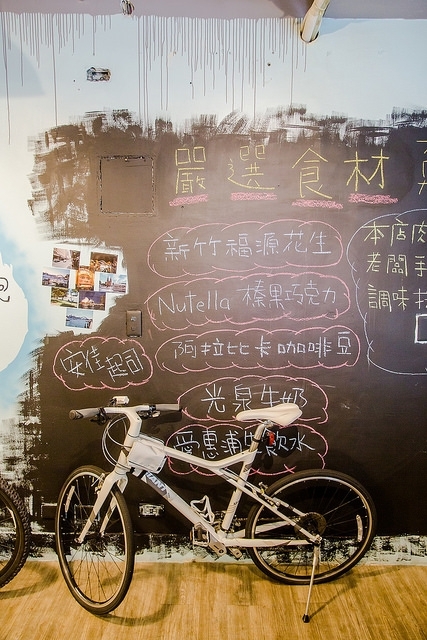 嚴選食材
新竹福源花生
Nutella 榛果巧克力
阿拉比卡咖啡豆
安佳起司
光泉牛奶
愛惠浦生飲水
本店肉
老闆手
調味